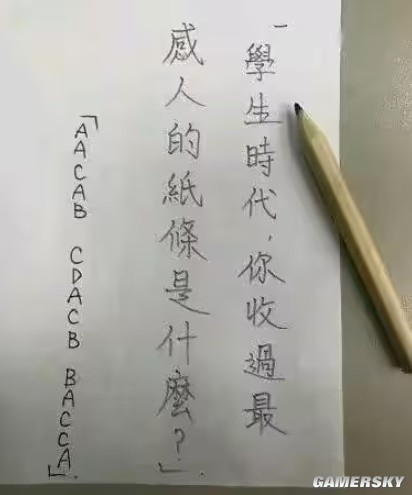 「學生時代，你收過最
感人的紙條是什麼？」.
「AACAB CDACB BACCA」.
GAMERSKY